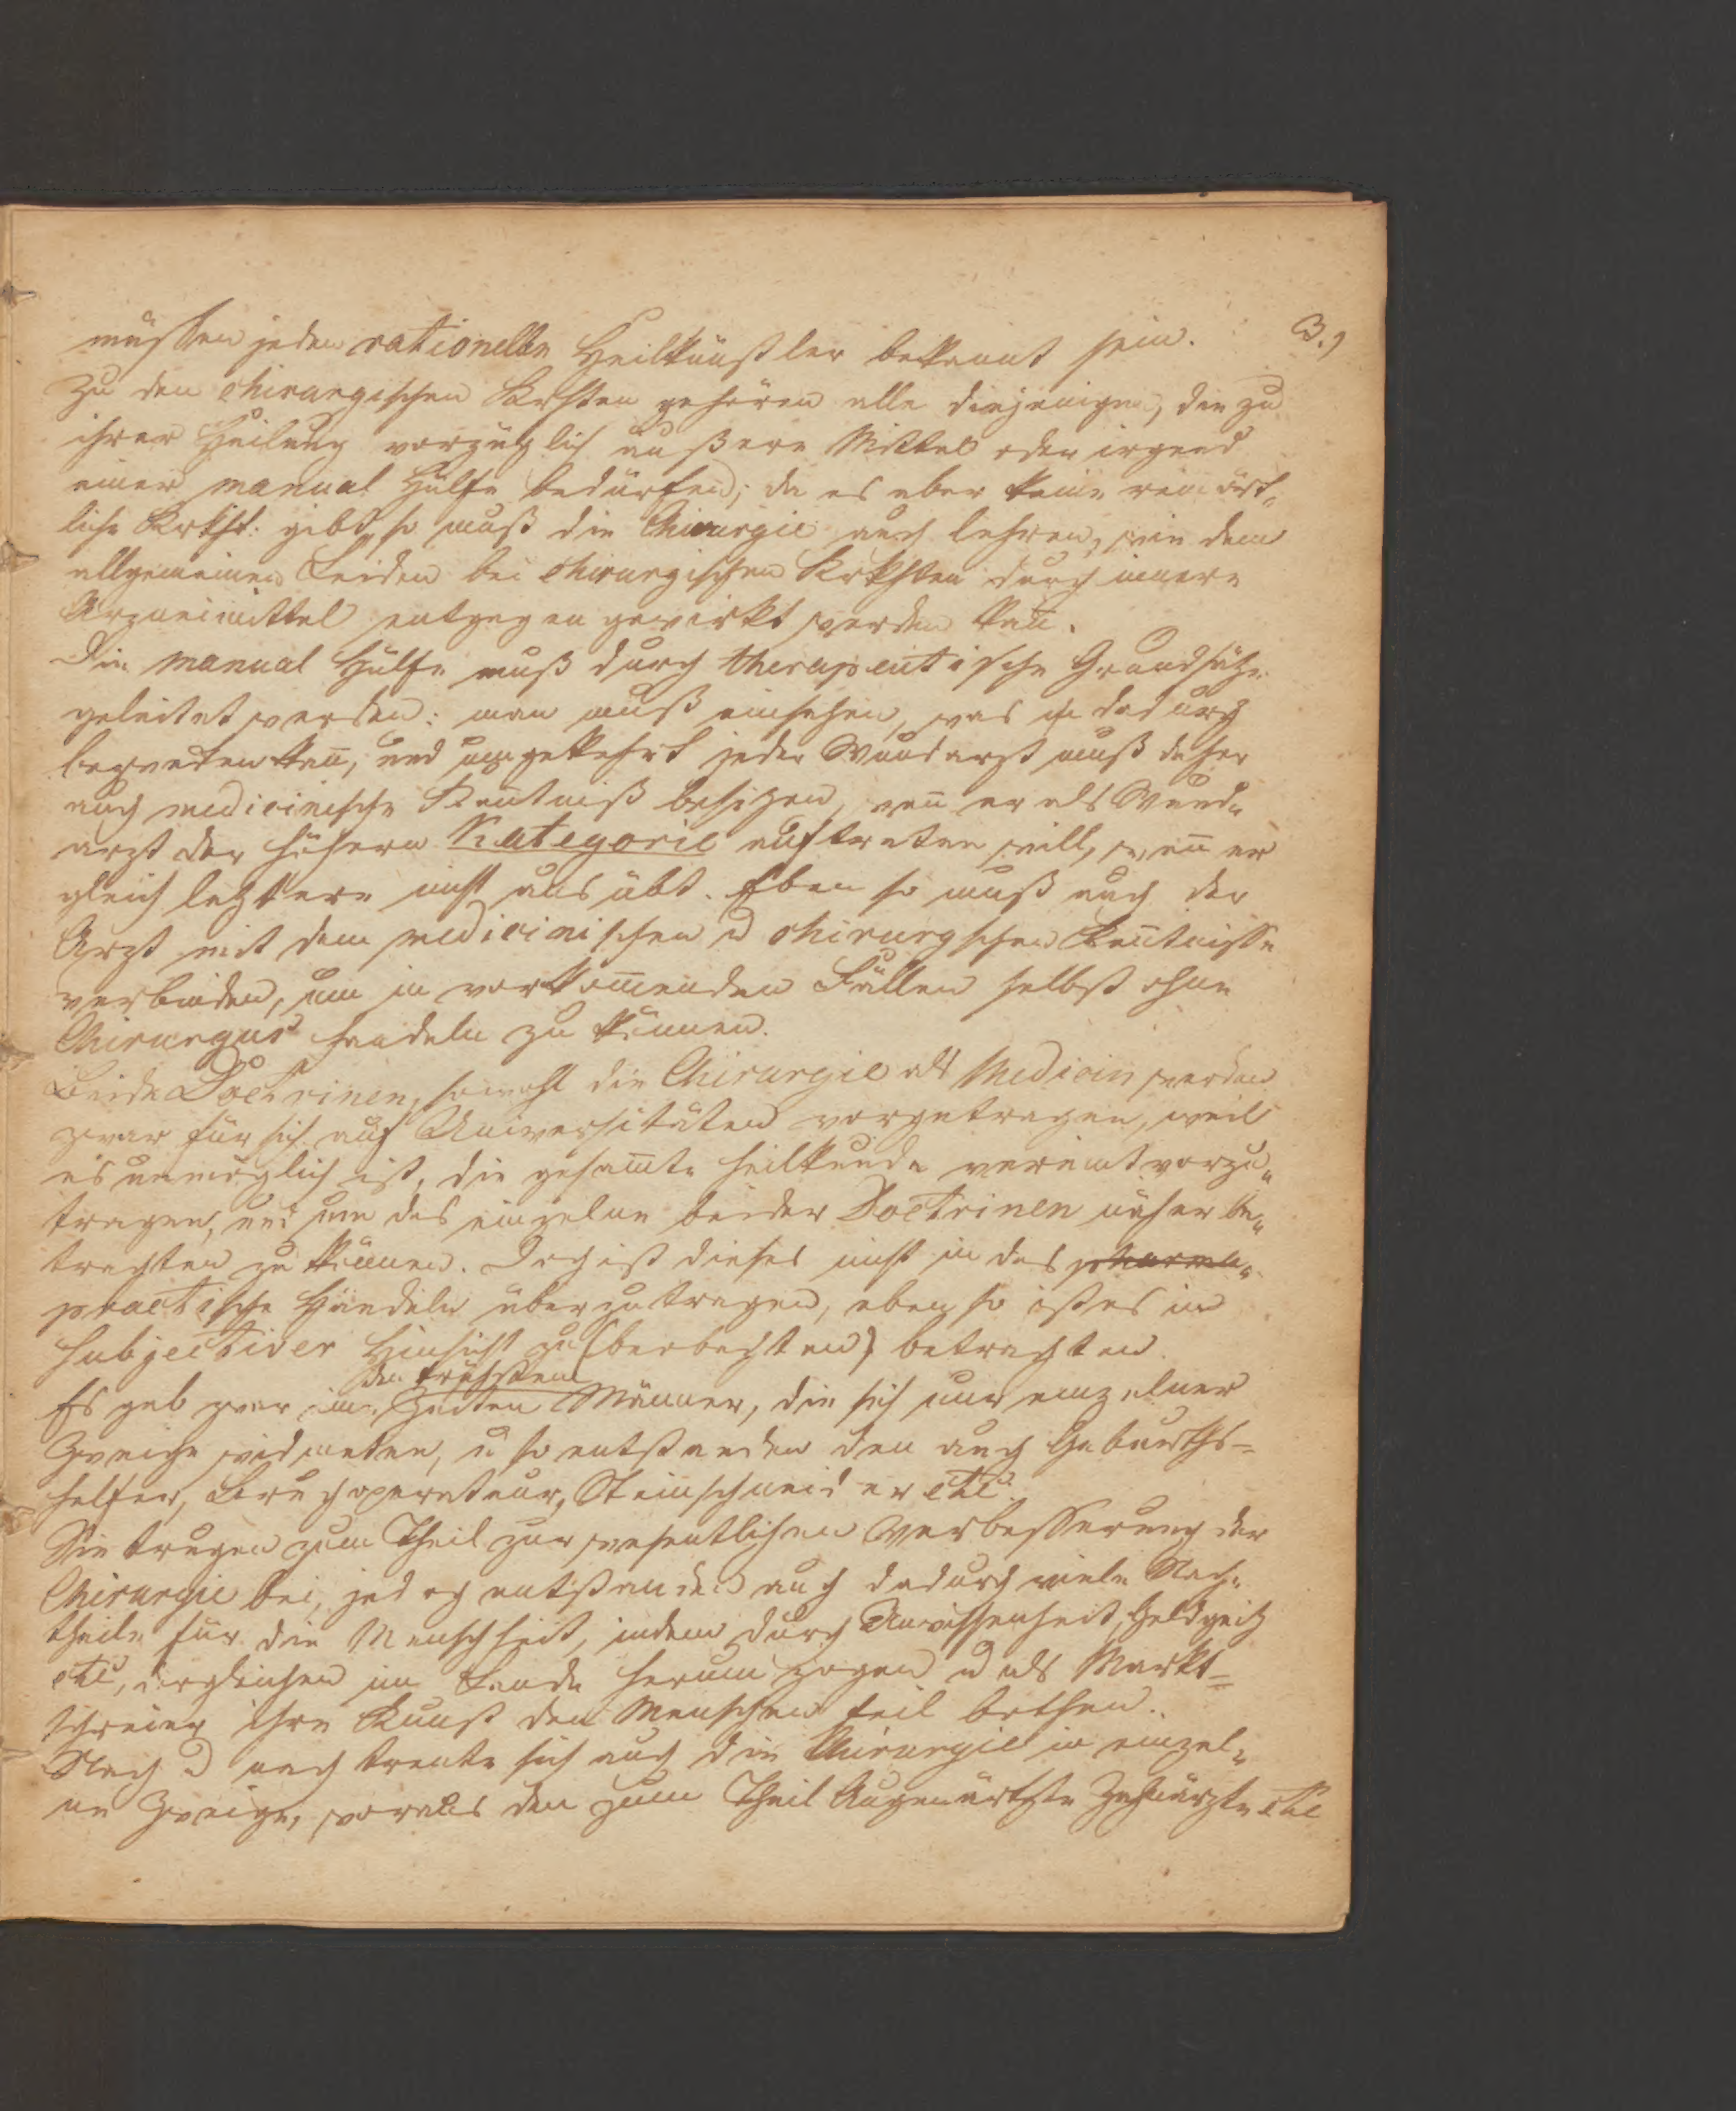 3.,
müssen jedem rationellen Heilkünstler bekannt sein.
Zu den chirurgischen Krkhten gehören alle diejenigen, die zu
ihrer Heilung vorzüglich äußere Mittel oder irgend
einer manual Hülfe bedürfen; da es aber keine rein ört„
liche Krkht: gibt, so muß die Chirurgie auch lehren, wie dem
allgemeinen Leiden bei chirurgischen Krkhten durch innere
Arzneimittel entgegen gewirkt werden kan̅.
Die manual Hülfe muß durch therapeutische Grundsätze
geleitet werden: man muß einsehen, was dadurch
kan̅, und umgekehrt jeder Wundarzt muß daher
auch medicinische Ken̅tniß besitzen, wen̅ er als Wund„
arzt der höhern Kategorie auftreten will, wen̅ er
gleich letztere nicht ausübt. Eben so muß auch der
Arzt mit dem medicinischen u chirurgschen Ken̅tnisse
verbinden, um in vorkom̅enden Fällen selbst ohne
Chirurgus handeln zu können.
Beide Doctrinen, sowohl die Chirurgie als Medicin werden
zwar für sich auf Universitäten vorgetragen, weil
es unmöglich ist, die gesam̅te Heilkunde vereint vorzu„
tragen, und um das einzelne beider Doctrinen näher be„
trachten zu können. Doch ist dieses nicht in das pharma„
practische Handeln überzutragen, eben so ist es in
subjectiver Hinsicht zu (beobachten) betrachten.
den frühsten
Es gab zwar in Zeiten Männer, die sich nur einzelner
Zweige widmeten, u so entstanden den auch Geburths-
helfer, Bruchoperateur, Steinschneider etc.
Sie trugen zum Theil zur wesentlichen Verbesserung der
Chirurgie bei, jedoch entstanden auch dadurch viele Nach„
theile für die Menschheit, indem durch Unwissenheit, Geldgeitz
etc, dergleichen im Lande herum zogen u als Markt=
schreier ihre Kunst den Menschen feil bothen.
Nach u nach trente sich auch die Chirurgie in einzel„
ne Zweige, woraus den zum Theil Augenärtzte Zahnärzte etc